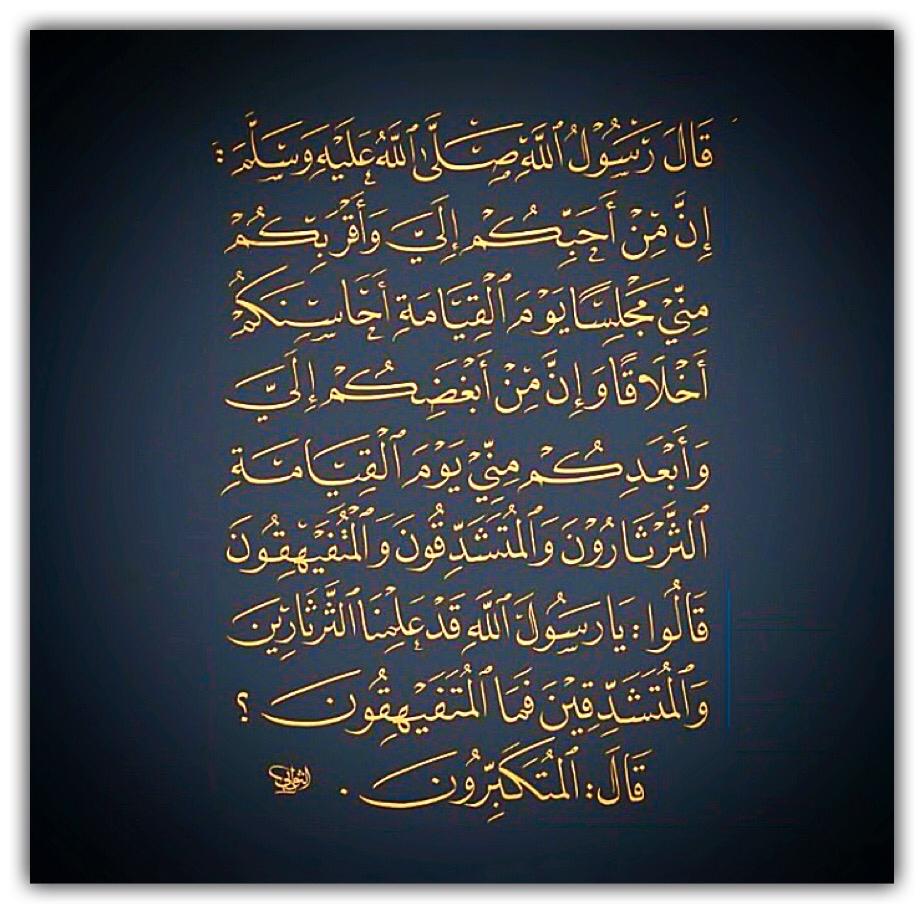 قَالَ رَسُوْلُ ٱللَّهِ صَلَّى ٱللَّهُ عَلَيْهِ وَسَلَّمَ :
إِنَّ مِنْ أَحَبِّكُمْ إِلَيَّ وَأَقْرَبِكُمْ
مِنِّيْ مَجْلِسًا يَوْمَ ٱلْقِيَامَةِ أَحَاسِنَكُمْ
أَخْلَاقًا وَإِنَّ مِنْ أَبْغَضِكُمْ إِلَيَّ
وَأَبْعَدِكُمْ مِنِّيْ يَوْمَ ٱلْقِيَامَةِ
ٱلثَّرْثَارُوْنَ وَٱلْمُتَشَدِّقُونَ وَٱلْمُتَفَيْهِقُونَ
قَالُوا : يَا رَسُولَ ٱللَّهِ قَدْ عَلِمْنَا ٱلثَّرْثَارِيْنَ
وَٱلْمُتَشَدِّقِيْنَ فَمَا ٱلْمُتَفَيْهِقُونَ ؟
قَالَ : ٱلْمُتَكَبِّرُونَ .